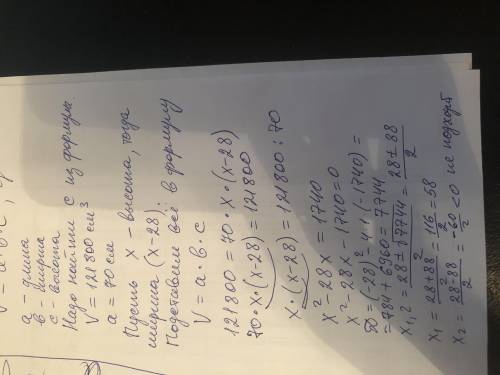 V = a · b · c,
a - длина
в - ширина
с - высота
Надо найти с из формулы.
V = 121 800 см³
a = 70 см
Пусть x - высота, тогда
ширина (x-28).
Подставим всё в формулу
V = a · b · c
121800 = 70 · x · (x-28)
70 · x · (x-28) = 121800
x · (x-28) = 121800 : 70
x² - 28x = 1740
x² - 28x - 1740 = 0
D = (-28)² - 4·1·(-1740) =
= 784 + 6960 = 7744
x₁,₂ = 28 ± √7744 / 2 = 28 ± 88 / 2
x₁ = 28+88 / 2 = 116 / 2 = 58
x₂ = 28-88 / 2 = -60 / 2 < 0 не подходит